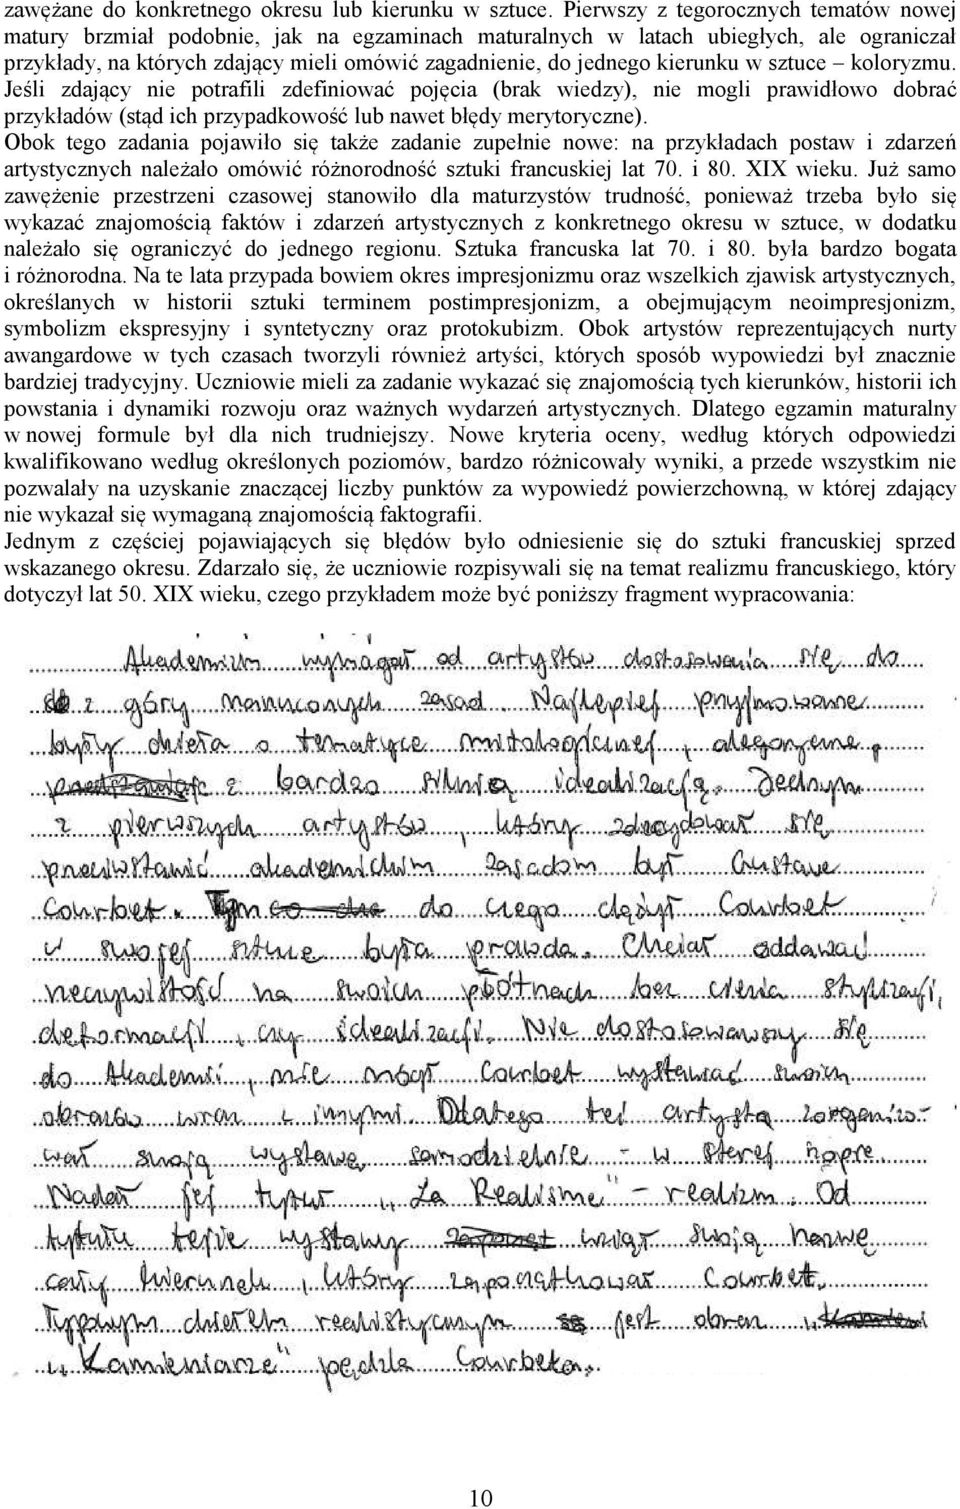 zawężane do konkretnego okresu lub kierunku w sztuce. Pierwszy z tegorocznych tematów nowej
matury brzmiał podobnie, jak na egzaminach maturalnych w latach ubiegłych, ale ograniczał
przykłady, na których zdający mieli omówić zagadnienie, do jednego kierunku w sztuce – koloryzmu.
Jeśli zdający nie potrafili zdefiniować pojęcia (brak wiedzy), nie mogli prawidłowo dobrać
przykładów (stąd ich przypadkowość lub nawet błędy merytoryczne).
Obok tego zadania pojawiło się także zadanie zupełnie nowe: na przykładach postaw i zdarzeń
artystycznych należało omówić różnorodność sztuki francuskiej lat 70. i 80. XIX wieku. Już samo
zawężenie przestrzeni czasowej stanowiło dla maturzystów trudność, ponieważ trzeba było się
wykazać znajomością faktów i zdarzeń artystycznych z konkretnego okresu w sztuce, w dodatku
należało się ograniczyć do jednego regionu. Sztuka francuska lat 70. i 80. była bardzo bogata
i różnorodna. Na te lata przypada bowiem okres impresjonizmu oraz wszelkich zjawisk artystycznych,
określanych w historii sztuki terminem postimpresjonizm, a obejmującym neoimpresjonizm,
symbolizm ekspresyjny i syntetyczny oraz protokubizm. Obok artystów reprezentujących nurty
awangardowe w tych czasach tworzyli również artyści, których sposób wypowiedzi był znacznie
bardziej tradycyjny. Uczniowie mieli za zadanie wykazać się znajomością tych kierunków, historii ich
powstania i dynamiki rozwoju oraz ważnych wydarzeń artystycznych. Dlatego egzamin maturalny
w nowej formule był dla nich trudniejszy. Nowe kryteria oceny, według których odpowiedzi
kwalifikowano według określonych poziomów, bardzo różnicowały wyniki, a przede wszystkim nie
pozwalały na uzyskanie znaczącej liczby punktów za wypowiedź powierzchowną, w której zdający
nie wykazał się wymaganą znajomością faktografii.
Jednym z częściej pojawiających się błędów było odniesienie się do sztuki francuskiej sprzed
wskazanego okresu. Zdarzało się, że uczniowie rozpisywali się na temat realizmu francuskiego, który
dotyczył lat 50. XIX wieku, czego przykładem może być poniższy fragment wypracowania:
Akademizm wymagał od artystów dostosowania się do
z góry narzuconych zasad. Najlepiej przyjmowane
były dzieła o tematyce mitologicznej, alegoryczne,
z bardzo silną idealizacją. Jednym
z pierwszych artystów, który zdecydował się
przeciwstawić akademickim zasadom był Gustave
Courbet. do czego dążył Courbet
w swojej sztuce była prawda. Chciał oddawać
rzeczywistość na swoich płótnach bez cienia stylizacji,
deformacji, czy idealizacji. Nie dostosowawszy się
do Akademii, nie mógł Courbet wystawiać swoich
obrazów wraz z innymi. Dlatego też artysta zorganizo-
wał swoją wystawę samodzielnie - w starej szopie.
Nadał jej tytuł „La Realisme" - realizm. Od
tytułu tejże wystawy wziął swoją nazwę
cały kierunek, który zapoczątkował Courbet.
Typowym dziełem realistycznym jest obraz
„Kamieniarze" pędzla Courbeta.
10